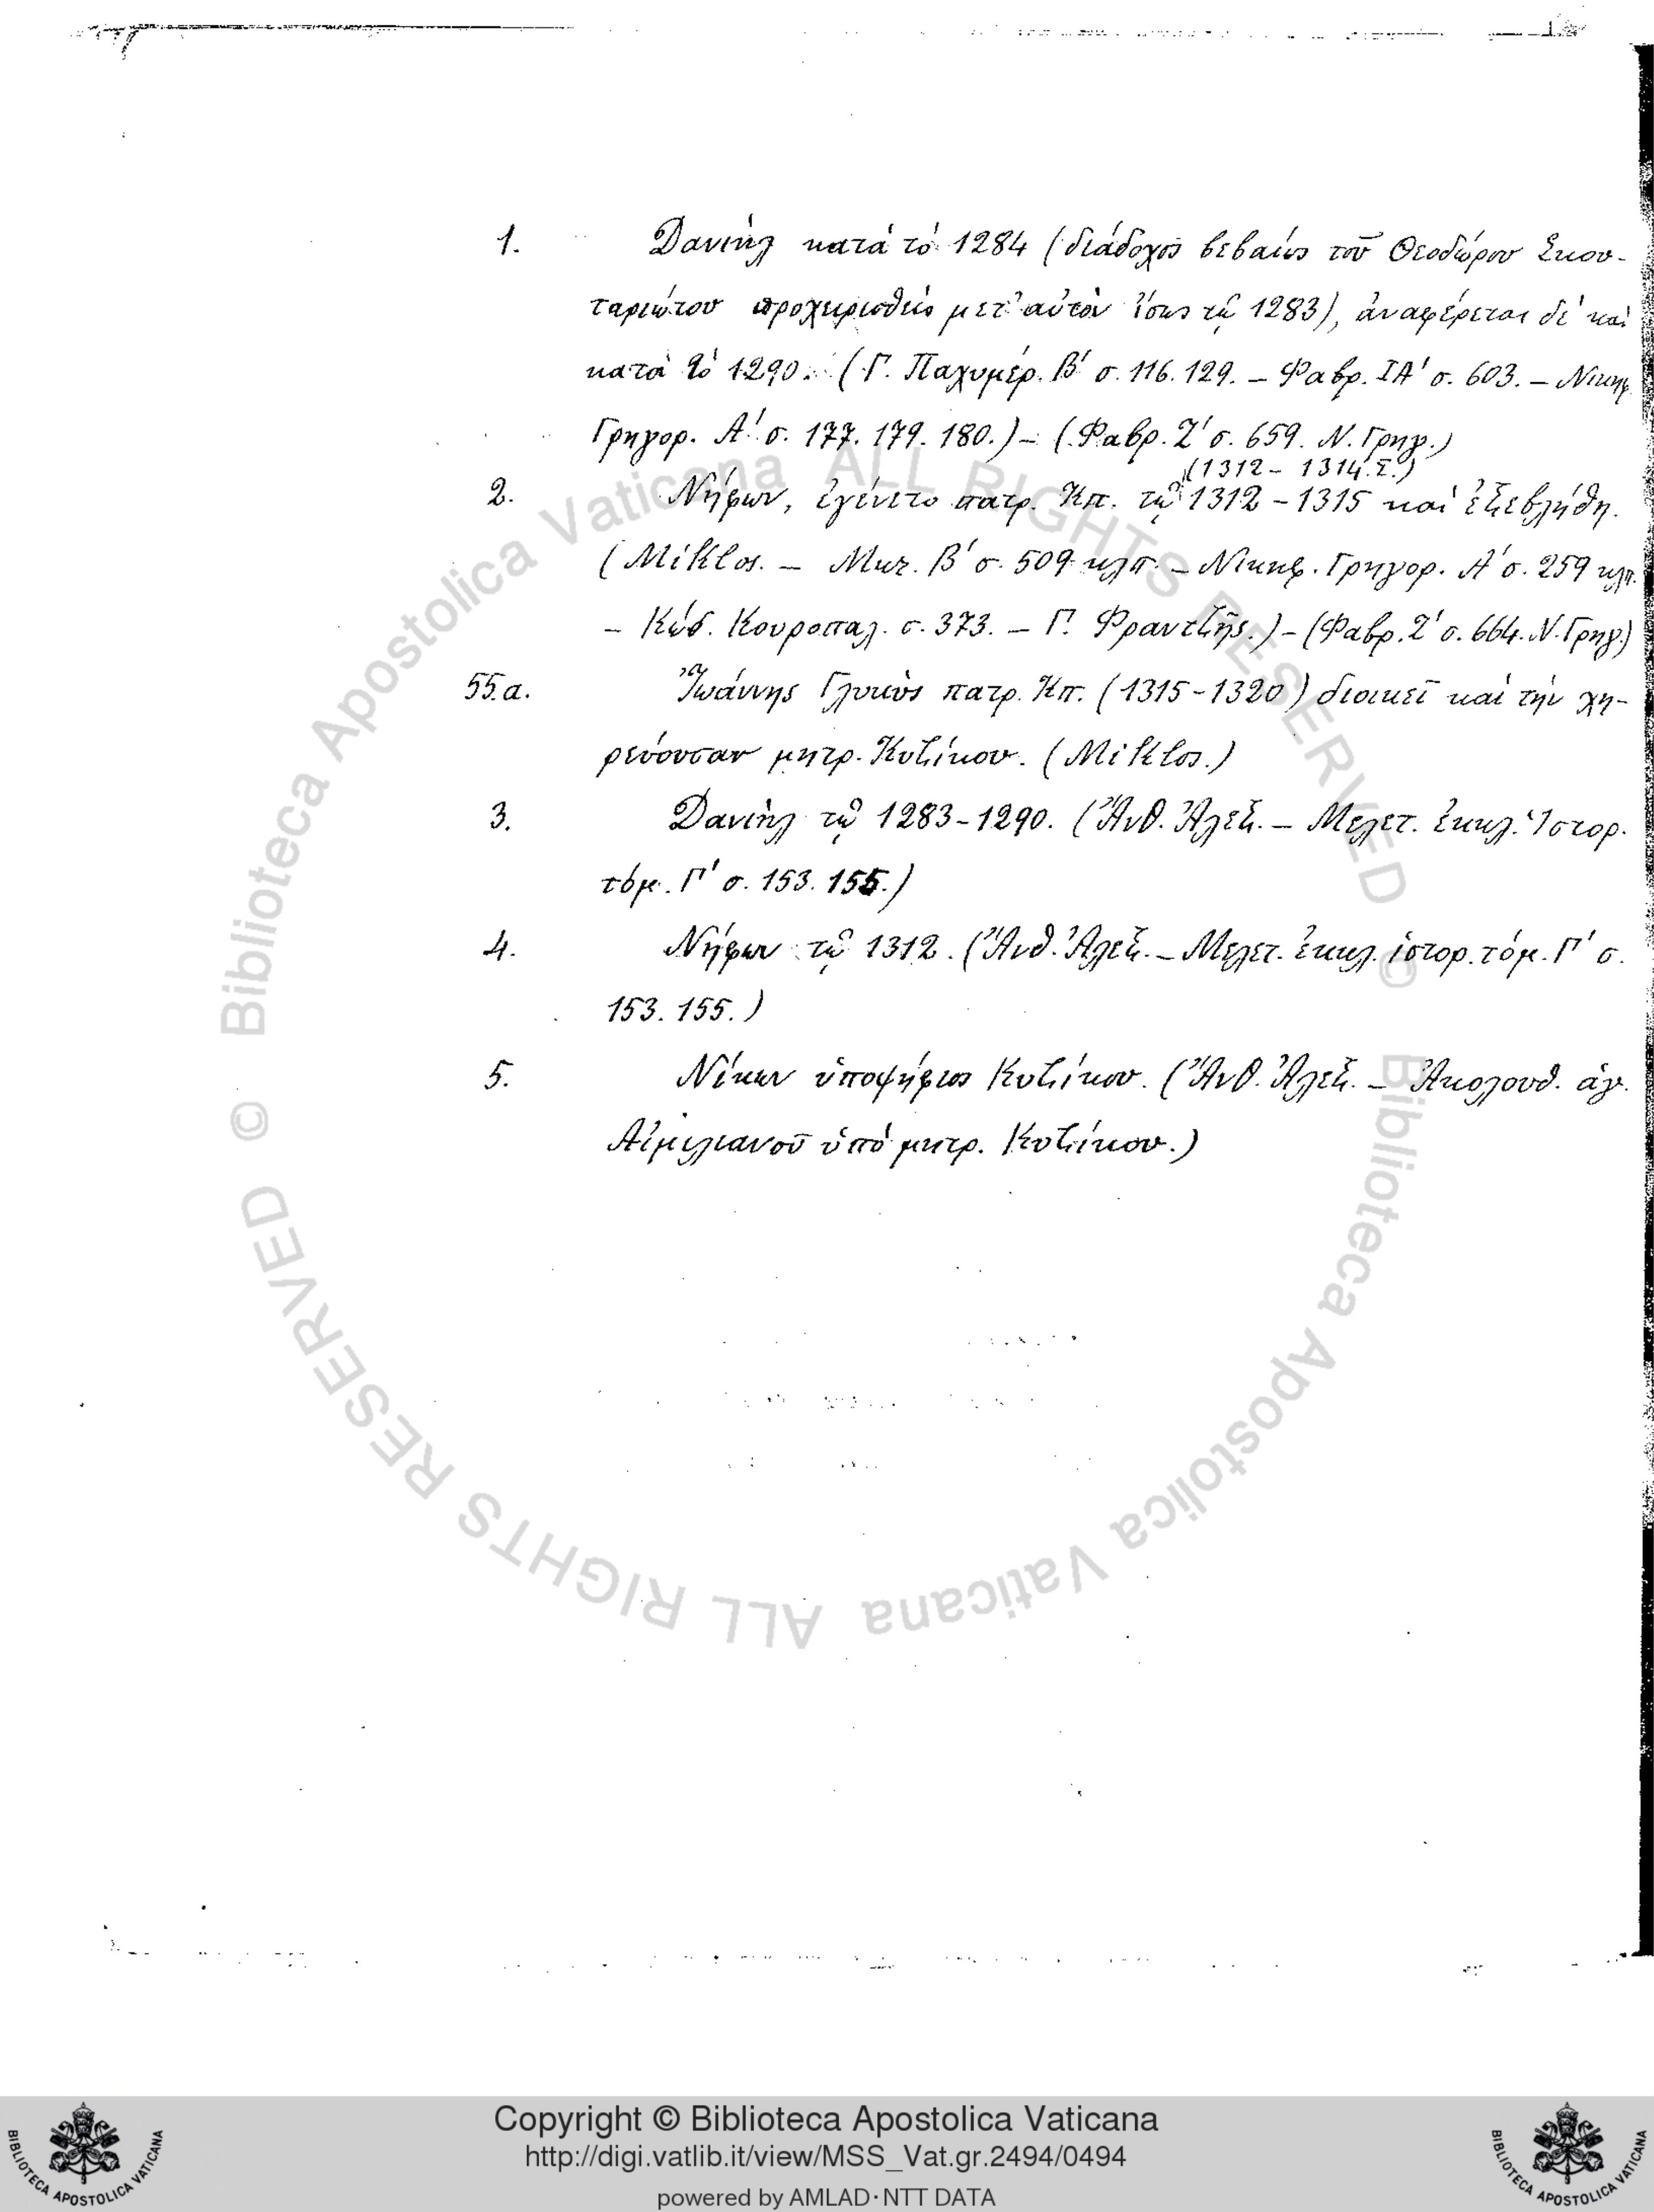 1. Δανιὴλ κατὰ τὸ 1284 (διάδοχος βεβαίως τοῦ Θεοδώρου Σκου-
ταριώτου προχειρισθεὶς μετ' αὐτὸν ἴσως τῷ 1283), ἀναφέρεται δὲ καὶ
κατὰ τὸ 1290. (Γ. Παχυμέρ. Β' σ. 116. 129. – Φαβρ. ΙΑ' σ. 603. – Νικηφ.
Γρηγορ. Α' σ. 177. 179. 180.) – (Φαβρ. Ζ' σ. 659. Ν. Γρηγ.)
(1312 – 1314. Σ.)
2. Νήφων, ἐγένετο πατρ. Κπ. τῷ 1312 – 1315 καὶ ἐξεβλήθη.
(Miklos. – Μυζ. Β' σ. 509 κλπ. – Νικηφ. Γρηγορ. Α' σ. 259 κλπ.
– Κώδ. Κουροπαλ. σ. 373. – Γ. Φραντζῆς.) – (Φαβρ. Ζ' σ. 664. Ν. Γρηγ.)
55.α. Ἰωάννης Γλυκὺς πατρ. Κπ. (1315 – 1320) διοικεῖ καὶ τὴν χη-
ρεύουσαν μητρ. Κυζίκου. (Miklos.)
3. Δανιὴλ τῷ 1283 – 1290. (Ἀνθ. Ἀλεξ. – Μελετ. ἐκκλ. Ἱστορ.
τόμ. Γ' σ. 153. 155.)
4. Νήφων τῷ 1312. (Ἀνθ. Ἀλεξ. – Μελετ. ἐκκλ. ἱστορ. τόμ. Γ' σ.
153. 155.)
5. Νίκων ὑποψήφιος Κυζίκου. (Ἀνθ. Ἀλεξ. – Ἀκολουθ. ἁγ.
Αἰμιλιανοῦ ὑπὸ μητρ. Κυζίκου.)
© Biblioteca Apostolica Vaticana ALL RIGHTS RESERVED
© Biblioteca Apostolica Vaticana ALL RIGHTS RESERVED
BIBLIOTECA APOSTOLICA VATICANA
Copyright © Biblioteca Apostolica Vaticana
http://digi.vatlib.it/view/MSS_Vat.gr.2494/0494
powered by AMLAD·NTT DATA
BIBLIOTECA APOSTOLICA VATICANA